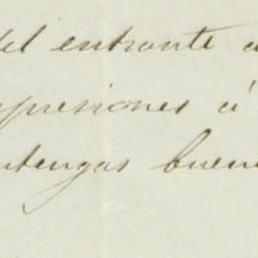 del entrante a
xpresiones á
ntengas buen